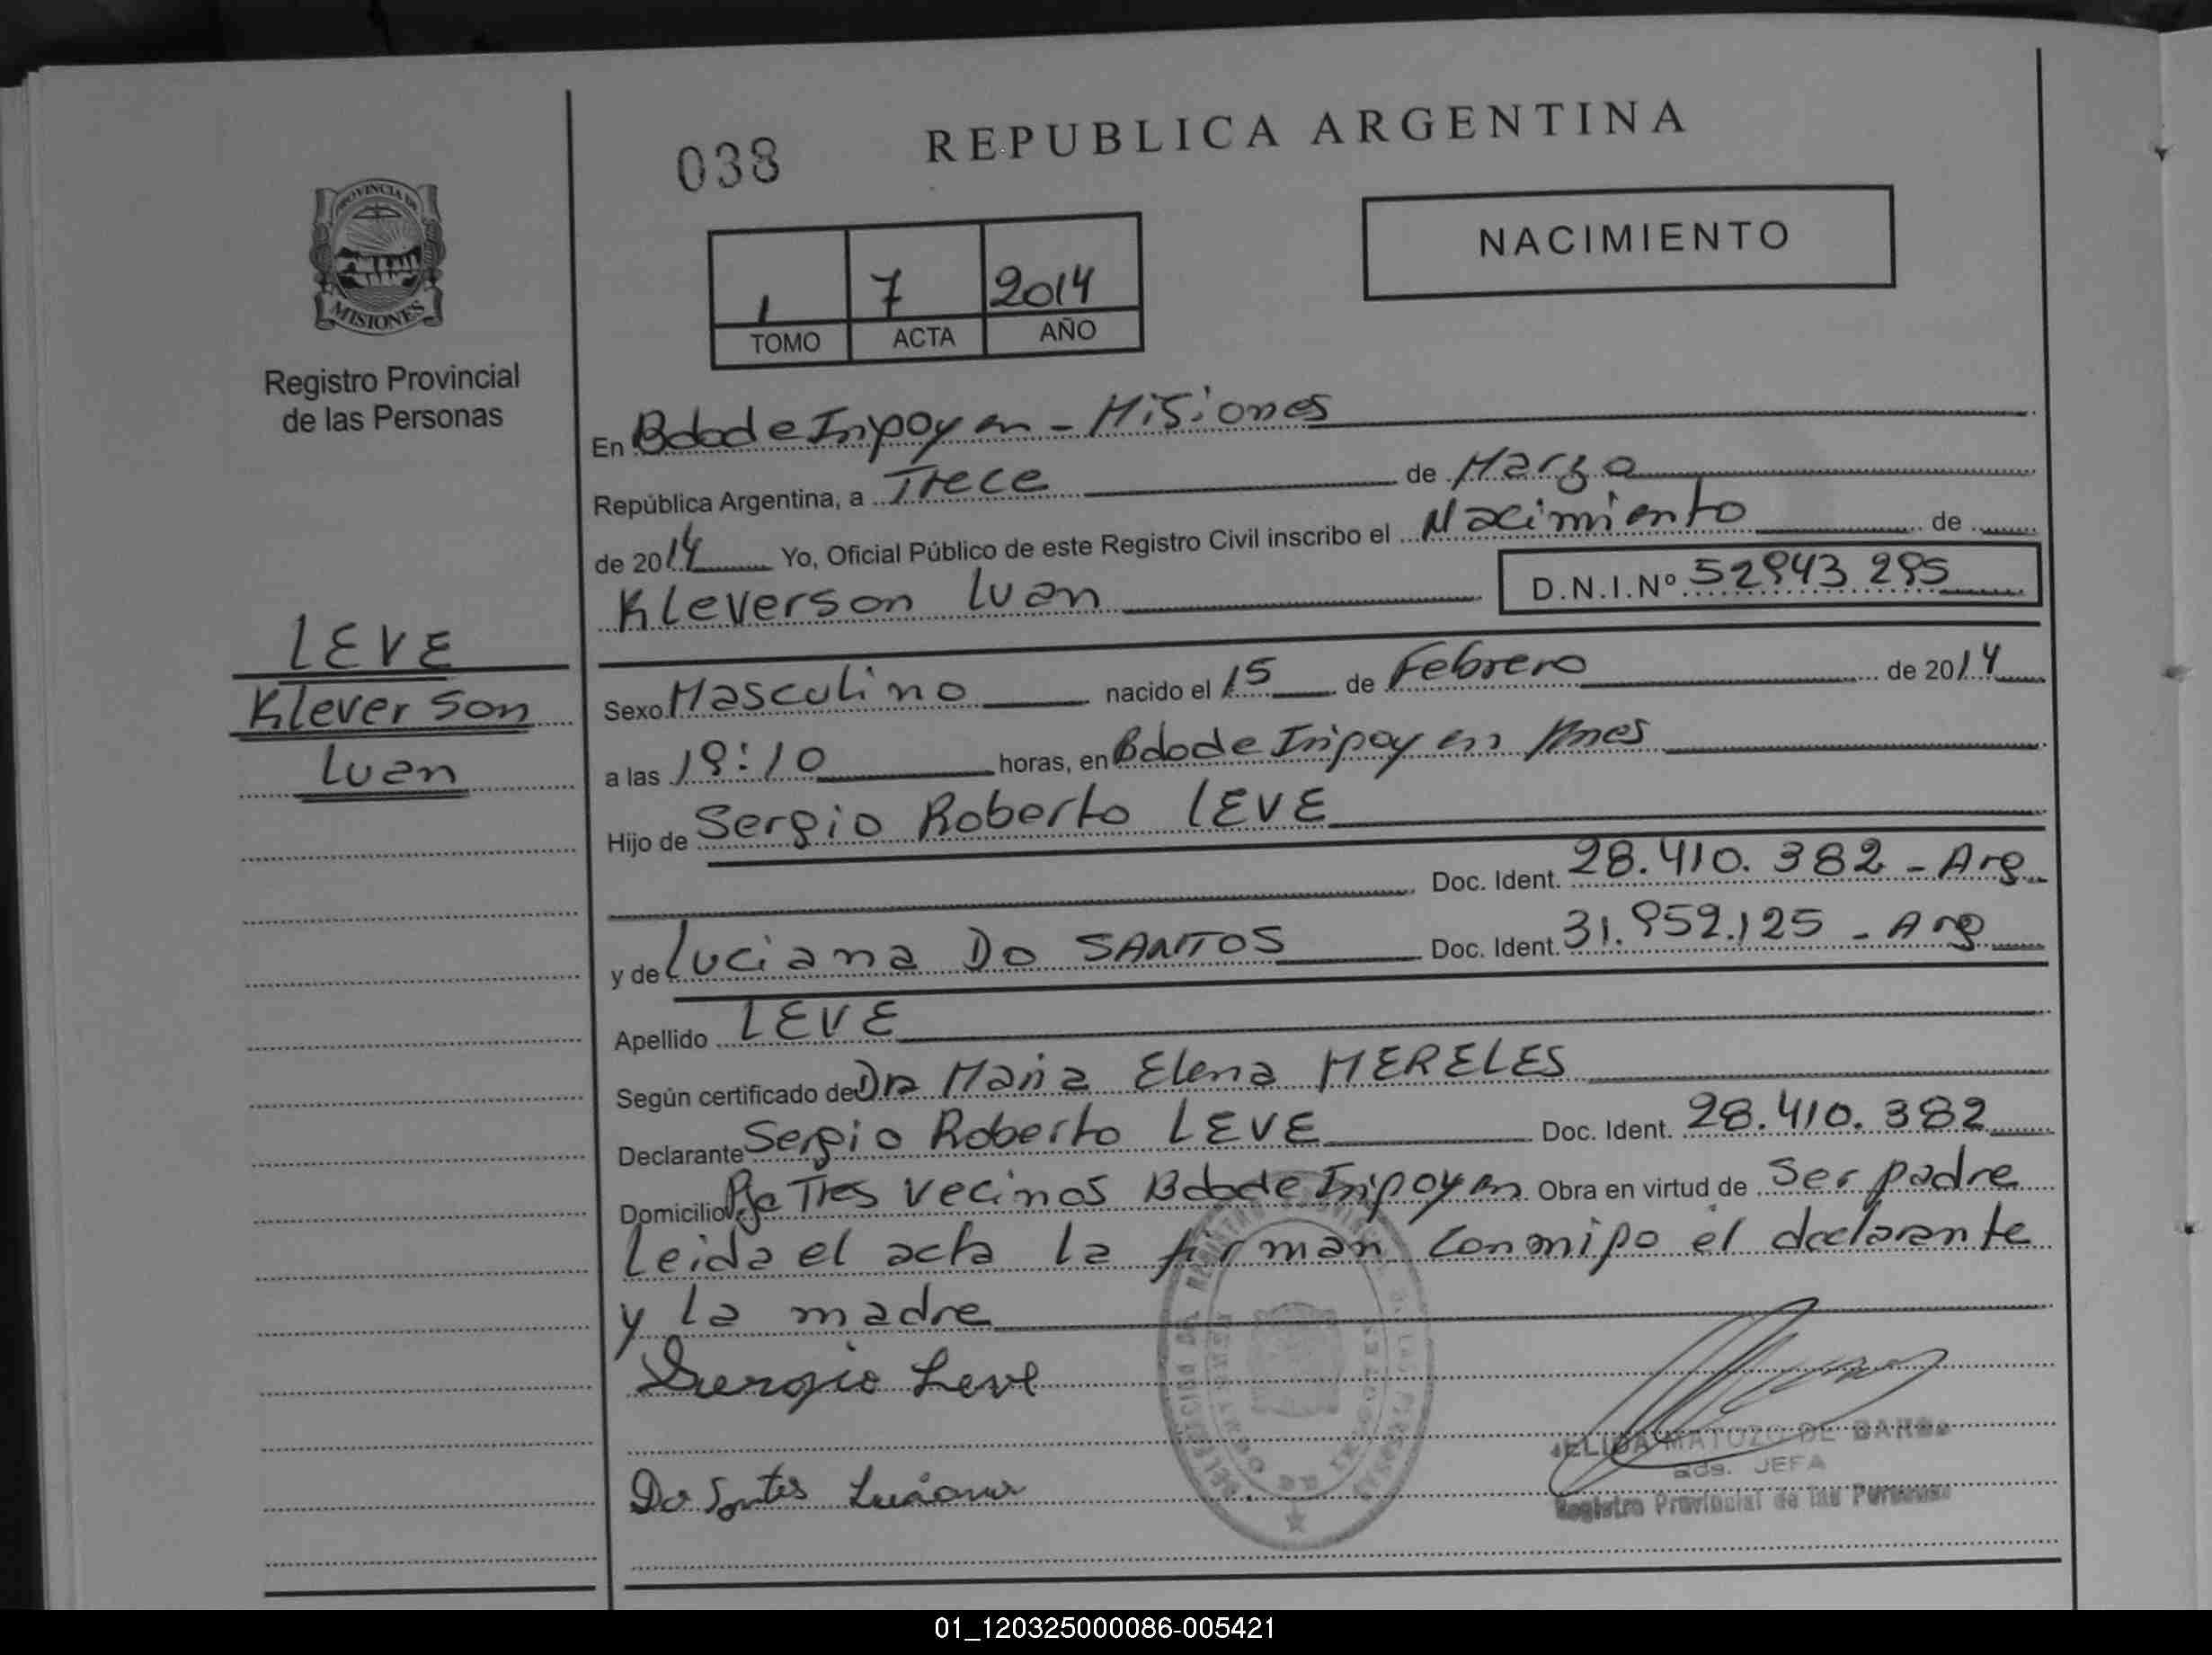 038 REPUBLICA ARGENTINA
NACIMIENTO
1 7 2014
TOMO ACTA AÑO
PROVINCIA DE
MISIONES
Registro Provincial
de las Personas
En Bdo de Irigoyen - Misiones
República Argentina, a Trece de Marzo
de 2014 Yo, Oficial Público de este Registro Civil inscribo el Nacimiento de
Kleverson Luan D.N.I.Nº 52943 295
LEVE
Kleverson
Luan
Sexo Masculino nacido el 15 de Febrero de 2014
a las 19:10 horas, en Bdo de Irigoyen Mnes
Hijo de Sergio Roberto LEVE
Doc. Ident. 28.410.382 - Arg
y de Luciana Do SANTOS Doc. Ident. 31.959.125 - Arg
Apellido LEVE
Según certificado de Dra Maria Elena MERELES
Declarante Sergio Roberto LEVE Doc. Ident. 28.410.382
Domicilio Pje Tres Vecinos Bdo de Irigoyen Obra en virtud de Ser padre
Leida el acta la firman conmigo el declarante
y la madre
Sergio Leve
Do Santos Luciana
MATOZO DE
JEFA
Registro Provincial de las Personas
01_120325000086-005421